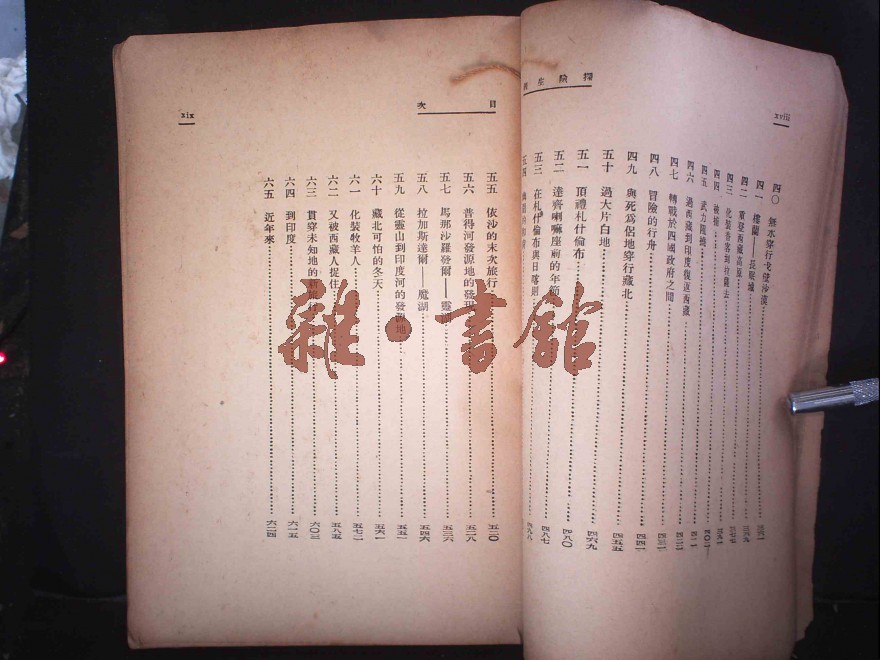 探險生
xviii
四〇 無水穿行戈壁沙漠
四一 樓蘭——長眠城
四二 重登西藏高原
四三 化裝香客到拉薩去
四四 被捕
四五 武力
四六 過西藏到印度復返西藏
四七 轉戰於四國政府之間
四八 冒險的行舟
四九 與死爲侶地穿行藏北
五十 過大片白地
五一 頂禮札什倫布
五二 達齊喇嘛座前的年節 四八〇
五三 在札什倫布與日喀則 四八七
五四
目次
xix
五五 依沙的末次旅行 五二〇
五六 普得河發源地的發現 五二八
五七 馬那沙羅發爾——靈湖 五三六
五八 拉加斯達爾——魔湖 五四六
五九 從靈山到印度河的發源地 五五一
六十 藏北可怕的冬天 五六一
六一 化裝牧羊人
六二 又被西藏人捉住 五八五
六三 貫穿未知地的新旅行 六〇三
六四 到印度 六一五
六五 近年來 六二四
雜·書館